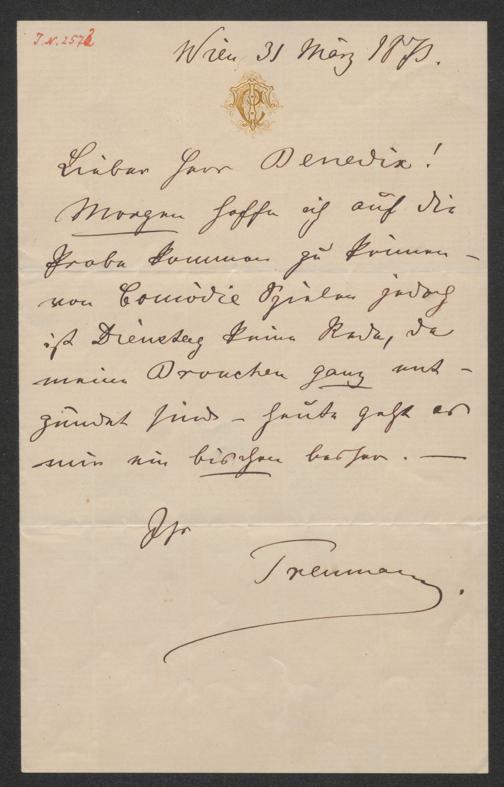 J. N. 2572
Wien 31 März 187
Lieber Herr Benedix!
Morgen hoffe ich auf die
Probe kommen zu können –
von Comödie Spielen jedoch
ist Dienstag keine Rede, da
meine Bronchen ganz ent-
zündet sind – heute geht es
mir ein bischen besser. —
Ihr